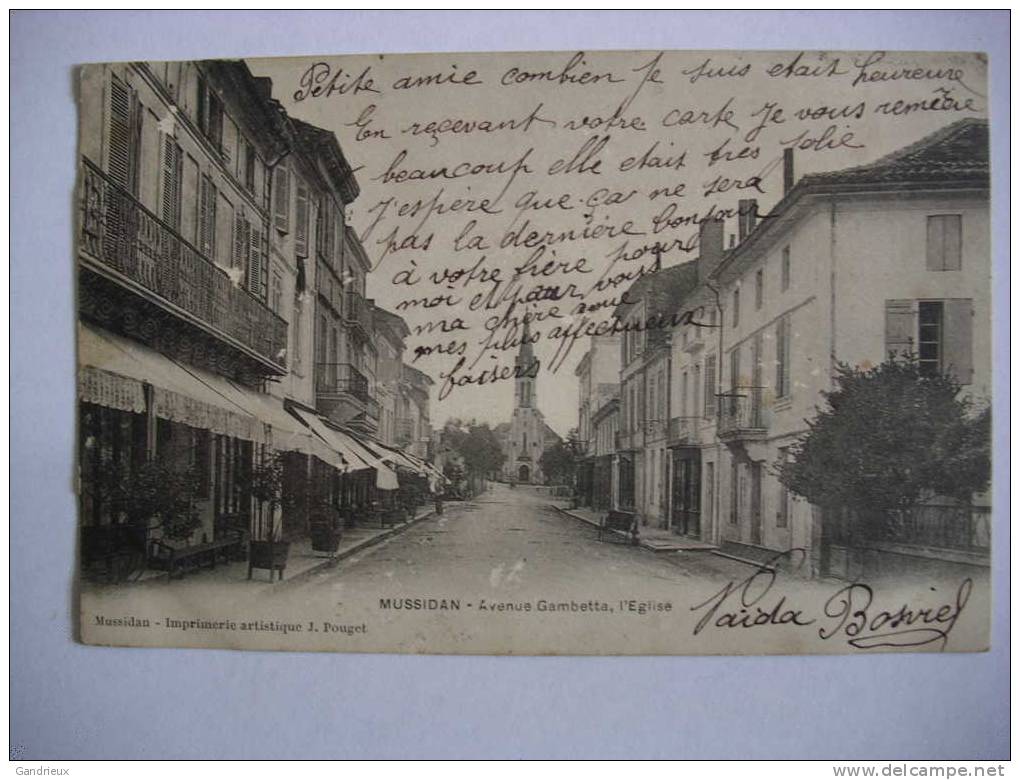 Petite amie combien Je suis etait heureuse
En reçevant votre carte Je vous remercie
beaucoup elle etait tres jolie
J'espère que ça ne sera
pas la dernière bonjour
à votre frère pour
moi et pour vous
ma chère amie
mes plus affectueux
baisers
MUSSIDAN - Avenue Gambetta, l'Eglise
Mussidan - Imprimerie artistique J. Pouget
Bosviel
Gandrieux
www.delcampe.net